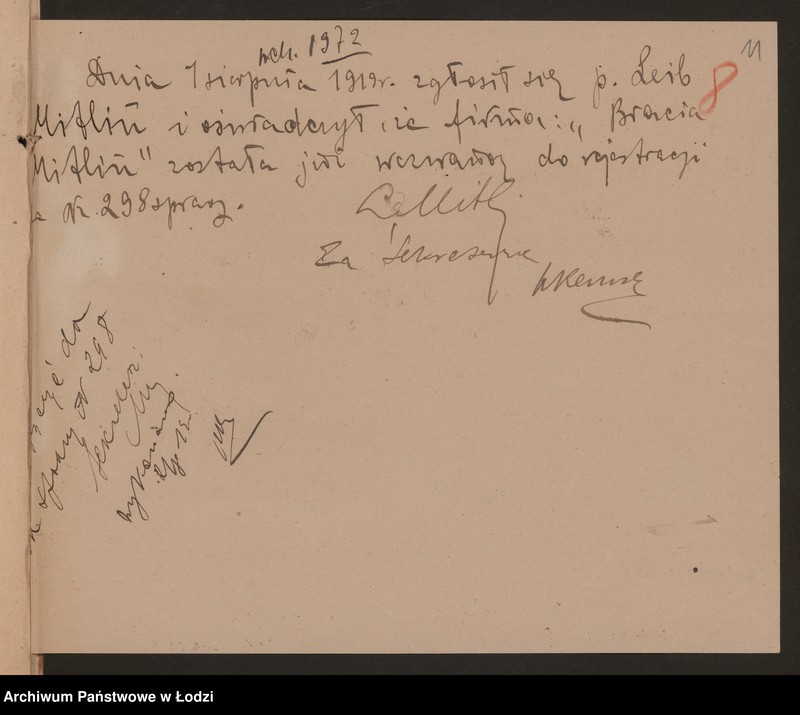 wch. 1972
11
8
Dnia 1 sierpnia 1919r. zgłosił się p. Leib
Mitlin i oświadczył, że firma: „Bracia
Mitlin" została już wezwaną do rejestracji
Nr. 298 spraw.
L. Mitli
Za Sekretarza
do
sprawy Nr 298
Sekretarz
wykonano
Archiwum Państwowe w Łodzi